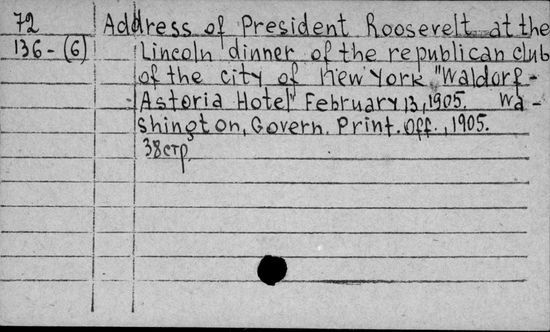 72 Address of President Roosevelt at the
136-(6) Lincoln dinner of the republican club
of the city of New York "Waldorf-
-Astoria Hotel" February 13, 1905. Wa-
shington, Govern. Print. Off., 1905.
38 стр.